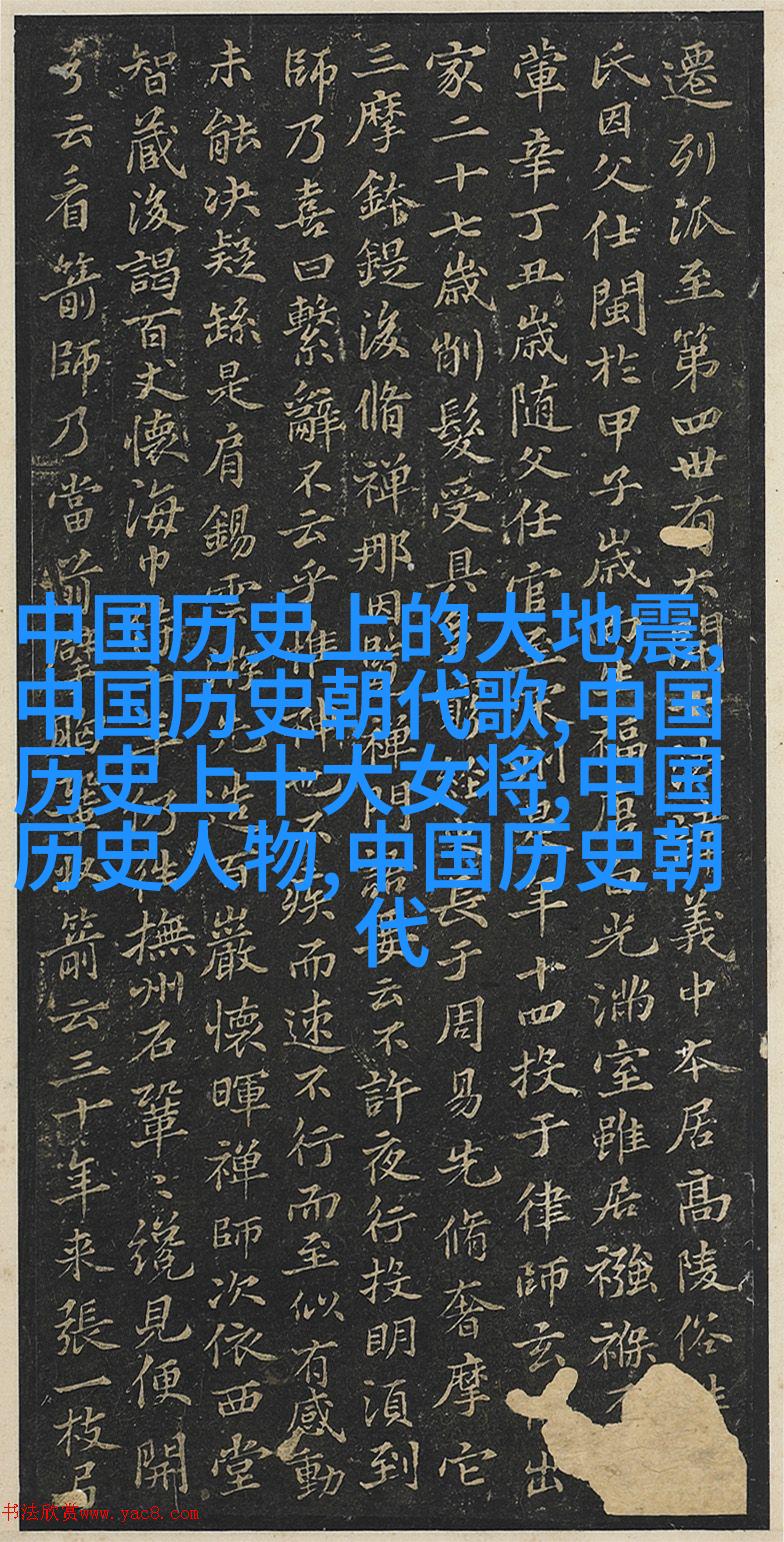 中国历史上的大地震,
中国历史朝代歌,中国
历史上十大女将,中国
历史人物,中国历史朝
代
遷列派至第四世有大 義中本居髙陵俗
氏因父仕閩於甲子歲 福唐 光滿室雖居襁褓
葷辛丁丑歲随父任官至 年十四投于律師玄 出
家二十七歲削髮受具多 長于周易先脩奢摩它
三摩鉢鍉後脩禅那因 禅門 云不許夜行投明湏到
師乃喜曰繫辭不云乎惟神也不疾而速不行而至似有感動
未能决疑繇是肩錫雲 造百巖懷暉禅師次依西堂
智藏後謁百丈懷海巾 撫州石鞏〻纔見便開
弓云看箭師乃當前擘胸 箭云三十年来張一枝弓
书法欣赏www.yac8.com